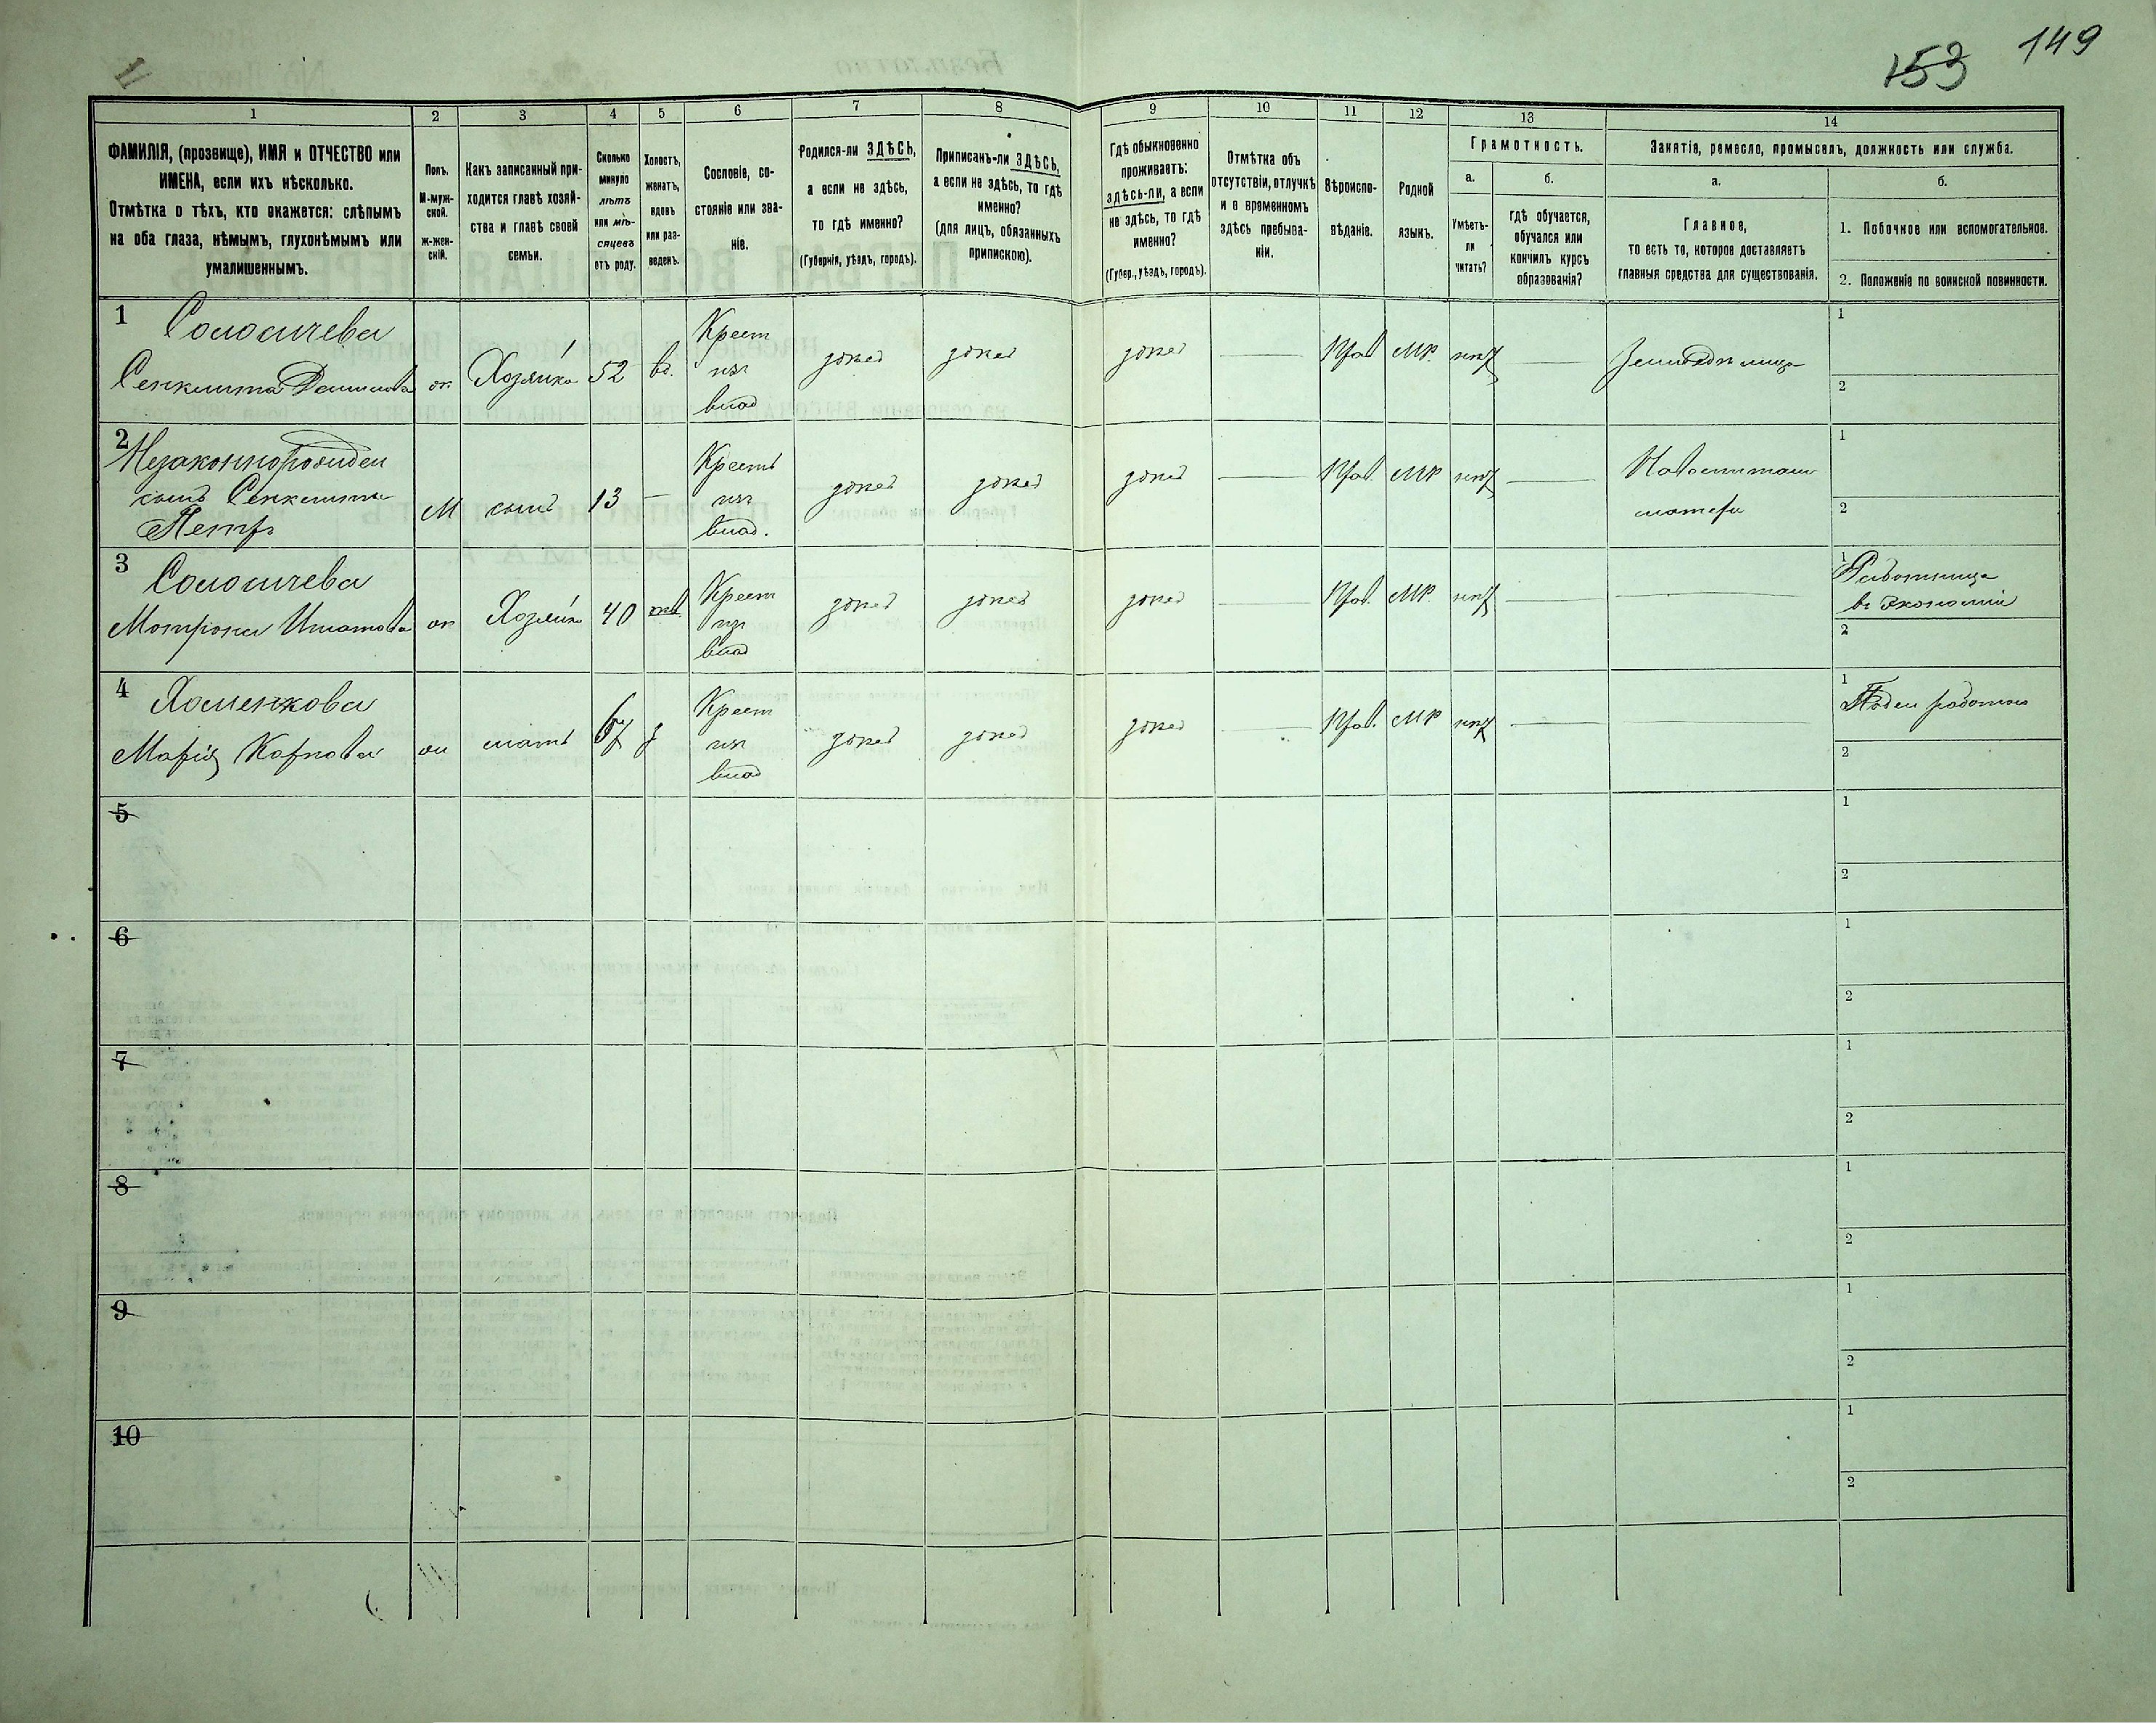 153 149
1 2 3 4 5 6 7 8 9 10 11 12 13 14
ФАМИЛІЯ, (прозвище), ИМЯ и ОТЧЕСТВО или
ИМЕНА, если ихъ нѣсколько.
Отмѣтка о тѣхъ, кто окажется: слѣпымъ
на оба глаза, нѣмымъ, глухонѣмымъ или
умалишеннымъ.
Полъ.
М-муж-
ской.
ж-жен-
скій.
Какъ записанный при-
ходится главѣ хозяй-
ства и главѣ своей
семьи.
Сколько
минуло
лѣтъ
или мѣ-
сяцевъ
отъ роду.
Холостъ,
женатъ,
вдовъ
или раз-
веденъ.
Сословіе, со-
стояніе или зва-
ніе.
Родился-ли ЗДѢСЬ,
а если не здѣсь,
то гдѣ именно?
(Губернія, уѣздъ, городъ).
Приписанъ-ли ЗДѢСЬ,
а если не здѣсь, то гдѣ
именно?
(для лицъ, обязанныхъ
припискою).
Гдѣ обыкновенно
проживаетъ:
здѣсь-ли, а если
не здѣсь, то гдѣ
именно?
(Губер., уѣздъ, городъ).
Отмѣтка объ
отсутствіи, отлучкѣ
и о временномъ
здѣсь пребыва-
ніи.
Вѣроиспо-
вѣданіе.
Родной
языкъ.
Грамотность.
а.
Умѣетъ-
ли
читать?
б.
гдѣ обучается,
обучался или
кончилъ курсъ
образованія?
Занятіе, ремесло, промыселъ, должность или служба.
а.
Главное,
то есть то, которое доставляетъ
главныя средства для существованія.
б.
1. Побочное или вспомогательное.
2. Положеніе по воинской повинности.
1
Хозяйка 52 вд. Крест из влад здесь здесь здесь Прав МР нет
1
2
2 Незаконнорожден
сынъ
Петръ
М сынъ 13 — Крестъ из влад. здесь здесь здесь Прав. МР нет
матери
1
2
3
Хозяйка 40 Крест из влад здесь здесь здесь Прав. МР. нет
1 Работница
въ Экономіи
2
4 Хоменкова
Марія Карпова
мать 67 Крест из влад здесь здесь здесь Прав. МР нет
1
2
5
1
2
6
1
2
7
1
2
8
1
2
9
1
2
10
1
2